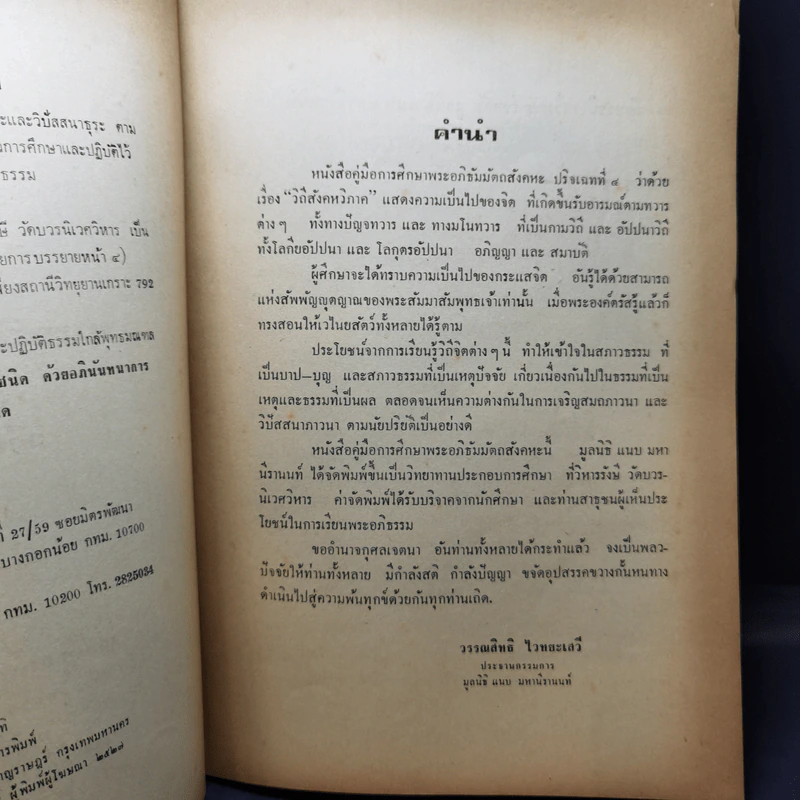 ะและวิปัสสนาธุระ ตาม
การศึกษาและปฏิบัติไว้
ธรรม
ษี วัดบวรนิเวศวิหาร เป็น
ยการบรรยายหน้า ๔)
สถานีวิทยุยานเกราะ 792
ะปฏิบัติธรรมใกล้พุทธมณฑล
ชนิด ด้วยอภินันทนาการ
ที่ 27/59 ซอยมิตรพัฒนา
บางกอกน้อย กทม. 10700
กทม. 10200 โทร. 2825034
ารพิมพ์
กรุงเทพมหานคร
ผู้พิมพ์ผู้โฆษณา ๒๕๒๗
คำนำ
หนังสือคู่มือการศึกษาพระอภิธัมมัตถสังคหะ ปริจเฉทที่ ๔ ว่าด้วย
เรื่อง “วิถีสังคหวิภาค” แสดงความเป็นไปของจิต ที่เกิดขึ้นรับอารมณ์ตามทวาร
ต่าง ๆ ทั้งทางปัญจทวาร และ ทางมโนทวาร ที่เป็นกามวิถี และ อัปปนาวิถี
ทั้งโลกียอัปปนา และ โลกุตรอัปปนา อภิญญา และ สมาบัติ
ผู้ศึกษาจะได้ทราบความเป็นไปของกระแสจิต อันรู้ได้ด้วยสามารถ
แห่งสัพพัญญุตญาณของพระสัมมาสัมพุทธเจ้าเท่านั้น เมื่อพระองค์ตรัสรู้แล้วก็
ทรงสอนให้เวไนยสัตว์ทั้งหลายได้รู้ตาม
ประโยชน์จากการเรียนรู้วิถีจิตต่าง ๆ นี้ ทำให้เข้าใจในสภาวธรรม ที่
เป็นบาป—บุญ และสภาวธรรมที่เป็นเหตุปัจจัย เกี่ยวเนื่องกันไปในธรรมที่เป็น
เหตุและธรรมที่เป็นผล ตลอดจนเห็นความต่างกันในการเจริญสมถภาวนา และ
วิปัสสนาภาวนา ตามนัยปริยัติเป็นอย่างดี
หนังสือคู่มือการศึกษาพระอภิธัมมัตถสังคหะนี้ มูลนิธิ แนบ มหา
นีรานนท์ ได้จัดพิมพ์ขึ้นเป็นวิทยาทานประกอบการศึกษา ที่วิหารรังษี วัดบวร-
นิเวศวิหาร ค่าจัดพิมพ์ได้รับบริจาคจากนักศึกษา และท่านสาธุชนผู้เห็นประ
โยชน์ในการเรียนพระอภิธรรม
ขออำนาจกุศลเจตนา อันท่านทั้งหลายได้กระทำแล้ว จงเป็นพลว-
ปัจจัยให้ท่านทั้งหลาย มีกำลังสติ กำลังปัญญา ขจัดอุปสรรคขวางกั้นหนทาง
ดำเนินไปสู่ความพ้นทุกข์ด้วยกันทุกท่านเถิด.
วรรณสิทธิ ไวทยะเสวี
ประธานกรรมการ
มูลนิธิ แนบ มหานีรานนท์